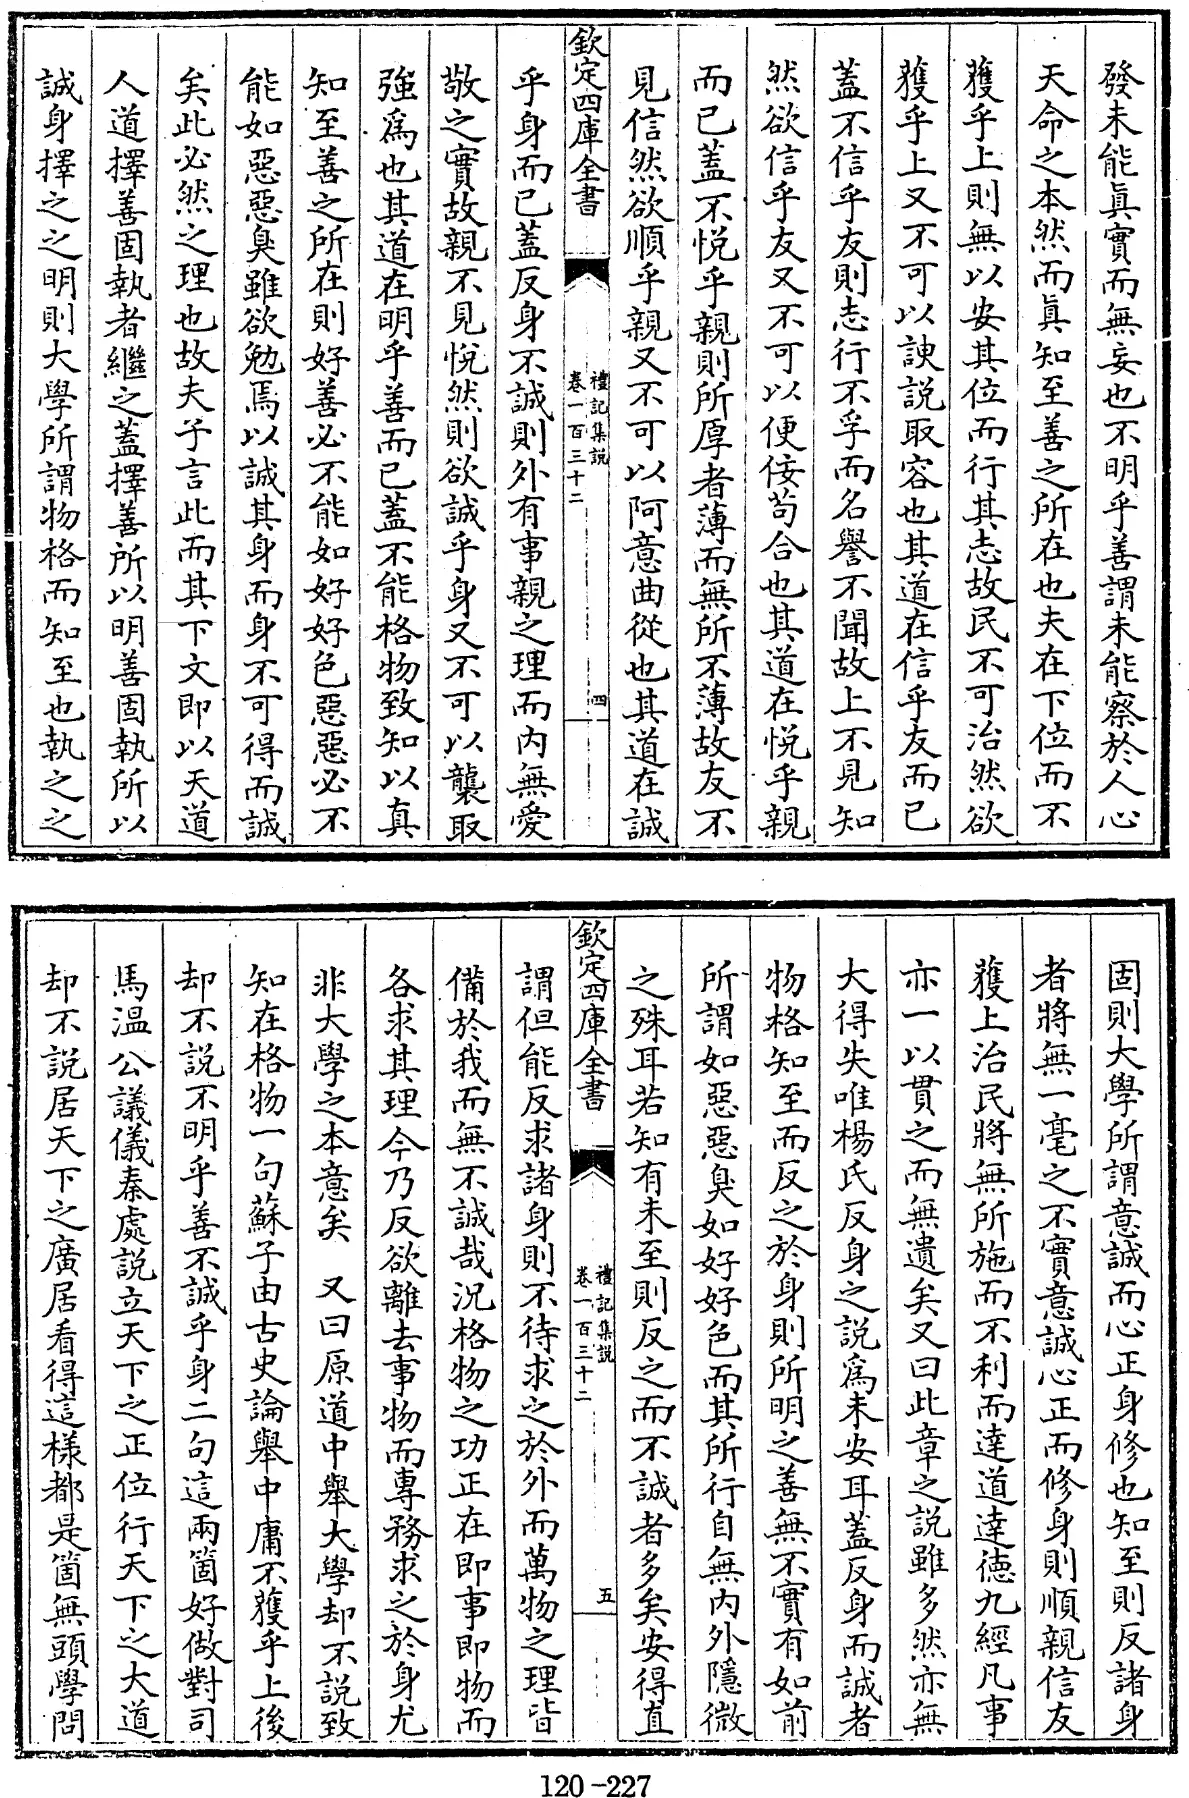 發未能眞實而無妄也不明乎善謂未能察於人心
天命之本然而眞知至善之所在也夫在下位而不
獲乎上則無以安其位而行其志故民不可治然欲
獲乎上又不可以諛説取容也其道在信乎友而已
蓋不信乎友則志行不孚而名譽不聞故上不見知
然欲信乎友又不可以便佞苟合也其道在悦乎親
而已蓋不悦乎親則所厚者薄而無所不薄故友不
見信然欲順乎親又不可以阿意曲從也其道在誠
欽定四庫全書
禮記集説
卷一百三十二
四
乎身而已蓋反身不誠則外有事親之理而内無愛
敬之實故親不見悦然則欲誠乎身又不可以襲取
強爲也其道在明乎善而已蓋不能格物致知以真
知至善之所在則好善必不能如好好色惡惡必不
能如惡惡臭雖欲勉焉以誠其身而身不可得而誠
矣此必然之理也故夫子言此而其下文即以天道
人道擇善固執者繼之蓋擇善所以明善固執所以
誠身擇之之明則大學所謂物格而知至也執之之
固則大學所謂意誠而心正身修也知至則反諸身
者將無一毫之不實意誠心正而修身則順親信友
獲上治民將無所施而不利而達道達德九經凡事
亦一以貫之而無遺矣又曰此章之説雖多然亦無
大得失唯楊氏反身之説爲未安耳蓋反身而誠者
物格知至而反之於身則所明之善無不實有如前
所謂如惡惡臭如好好色而其所行自無内外隱微
之殊耳若知有未至則反之而不誠者多矣安得直
欽定四庫全書
禮記集説
卷一百三十二
五
謂但能反求諸身則不待求之於外而萬物之理皆
備於我而無不誠哉況格物之功正在即事即物而
各求其理今乃反欲離去事物而專務求之於身尤
非大學之本意矣　又曰原道中舉大學却不説致
知在格物一句蘇子由古史論舉中庸不獲乎上後
却不説不明乎善不誠乎身二句這兩箇好做對司
馬温公議儀秦處説立天下之正位行天下之大道
却不説居天下之廣居看得這様都是箇無頭學問
120-227